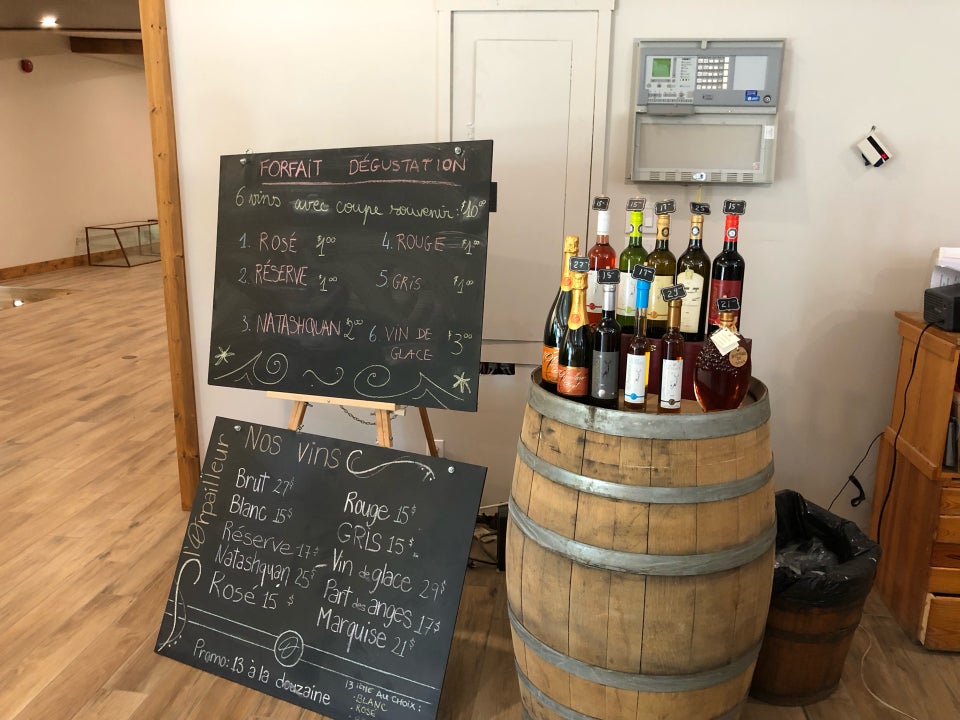 FORFAIT DÉGUSTATION
6 vins avec coupe souvenir: $10.00
1. ROSÉ $1.00
2. RÉSERVE $1.00
3. NATASHQUAN $2.00
4. ROUGE $1.00
5. GRIS $1.00
6. VIN DE GLACE $3.00
Nos vins
l'Orpailleur
Brut 27$
Blanc 15$
Réserve 17$
Natashquan 25$
Rosé 15$
Rouge 15$
GRIS 15$
Vin de glace 29$
Part des anges 17$
Marquise 21$
Promo: 13 à la douzaine
13 ième AU CHOIX:
- BLANC
- ROSÉ
15$
15$
17$
25$
15$
27$
15$
17$
29$
21$